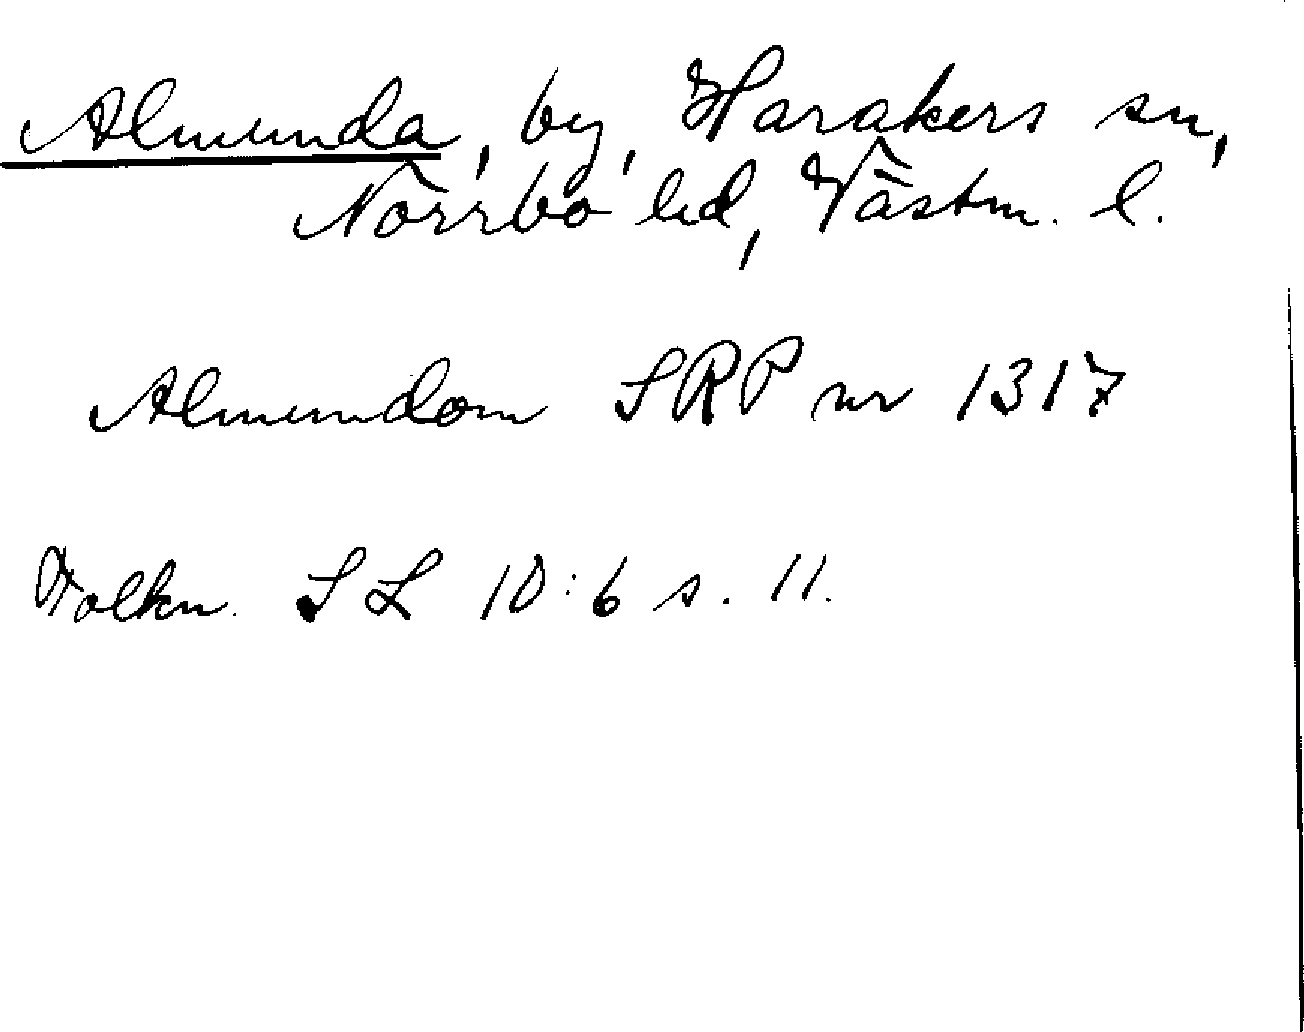 Almunda, by, Harakers sn,
Norrbo hd, Västm. l.
Almundom SRP nr 1317
Tolkn. SL 10:6 s. 11.